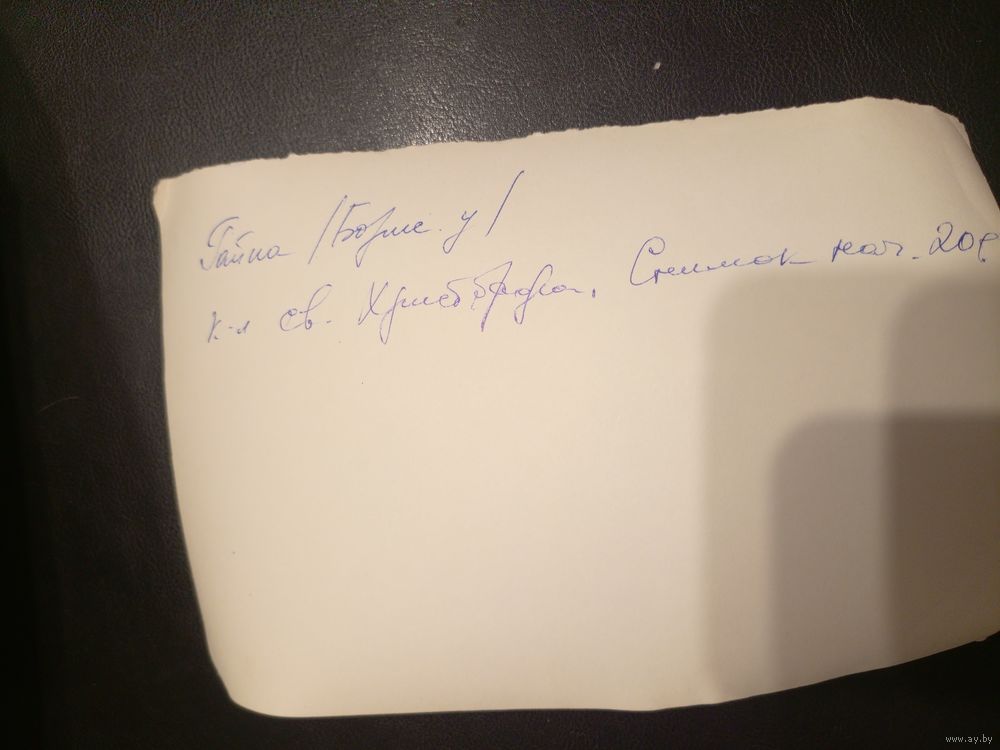 Гайна /Борис. у/
к-л св. Христофора. Снимок нач. 20с
www.ay.by